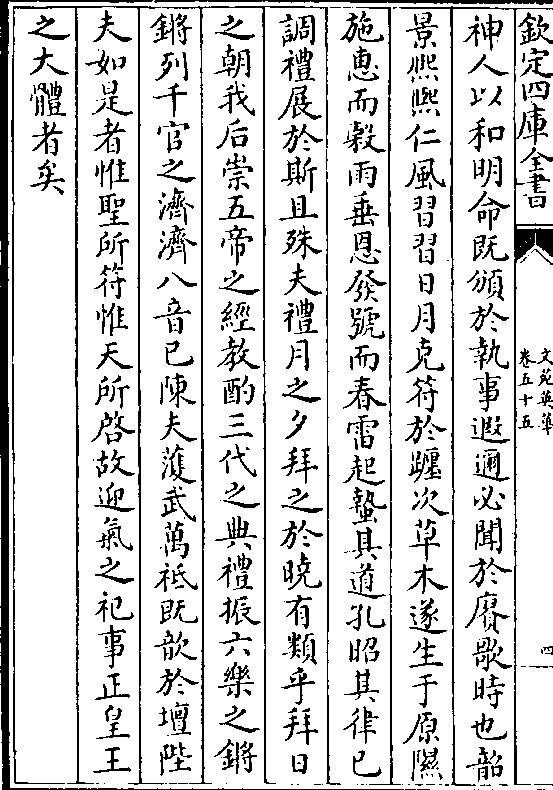 欽定四庫全書
文苑英華
卷五十五
四
神人以和明命既頒於執事遐邇必聞於賡歌時也韶
景熈熈仁風習習日月克符於躔次草木遂生于原隰
施恵而穀雨垂恩發號而春雷起蟄其道孔昭其律已
調禮展於斯且殊夫禮月之夕拜之於曉有類乎拜日
之朝我后崇五帝之經教酌三代之典禮振六樂之鏘
鏘列千官之濟濟八音已陳夫濩武萬祗既歆於壇陛
夫如是者惟聖所符惟天所啓故迎氣之祀事正皇王
之大體者矣